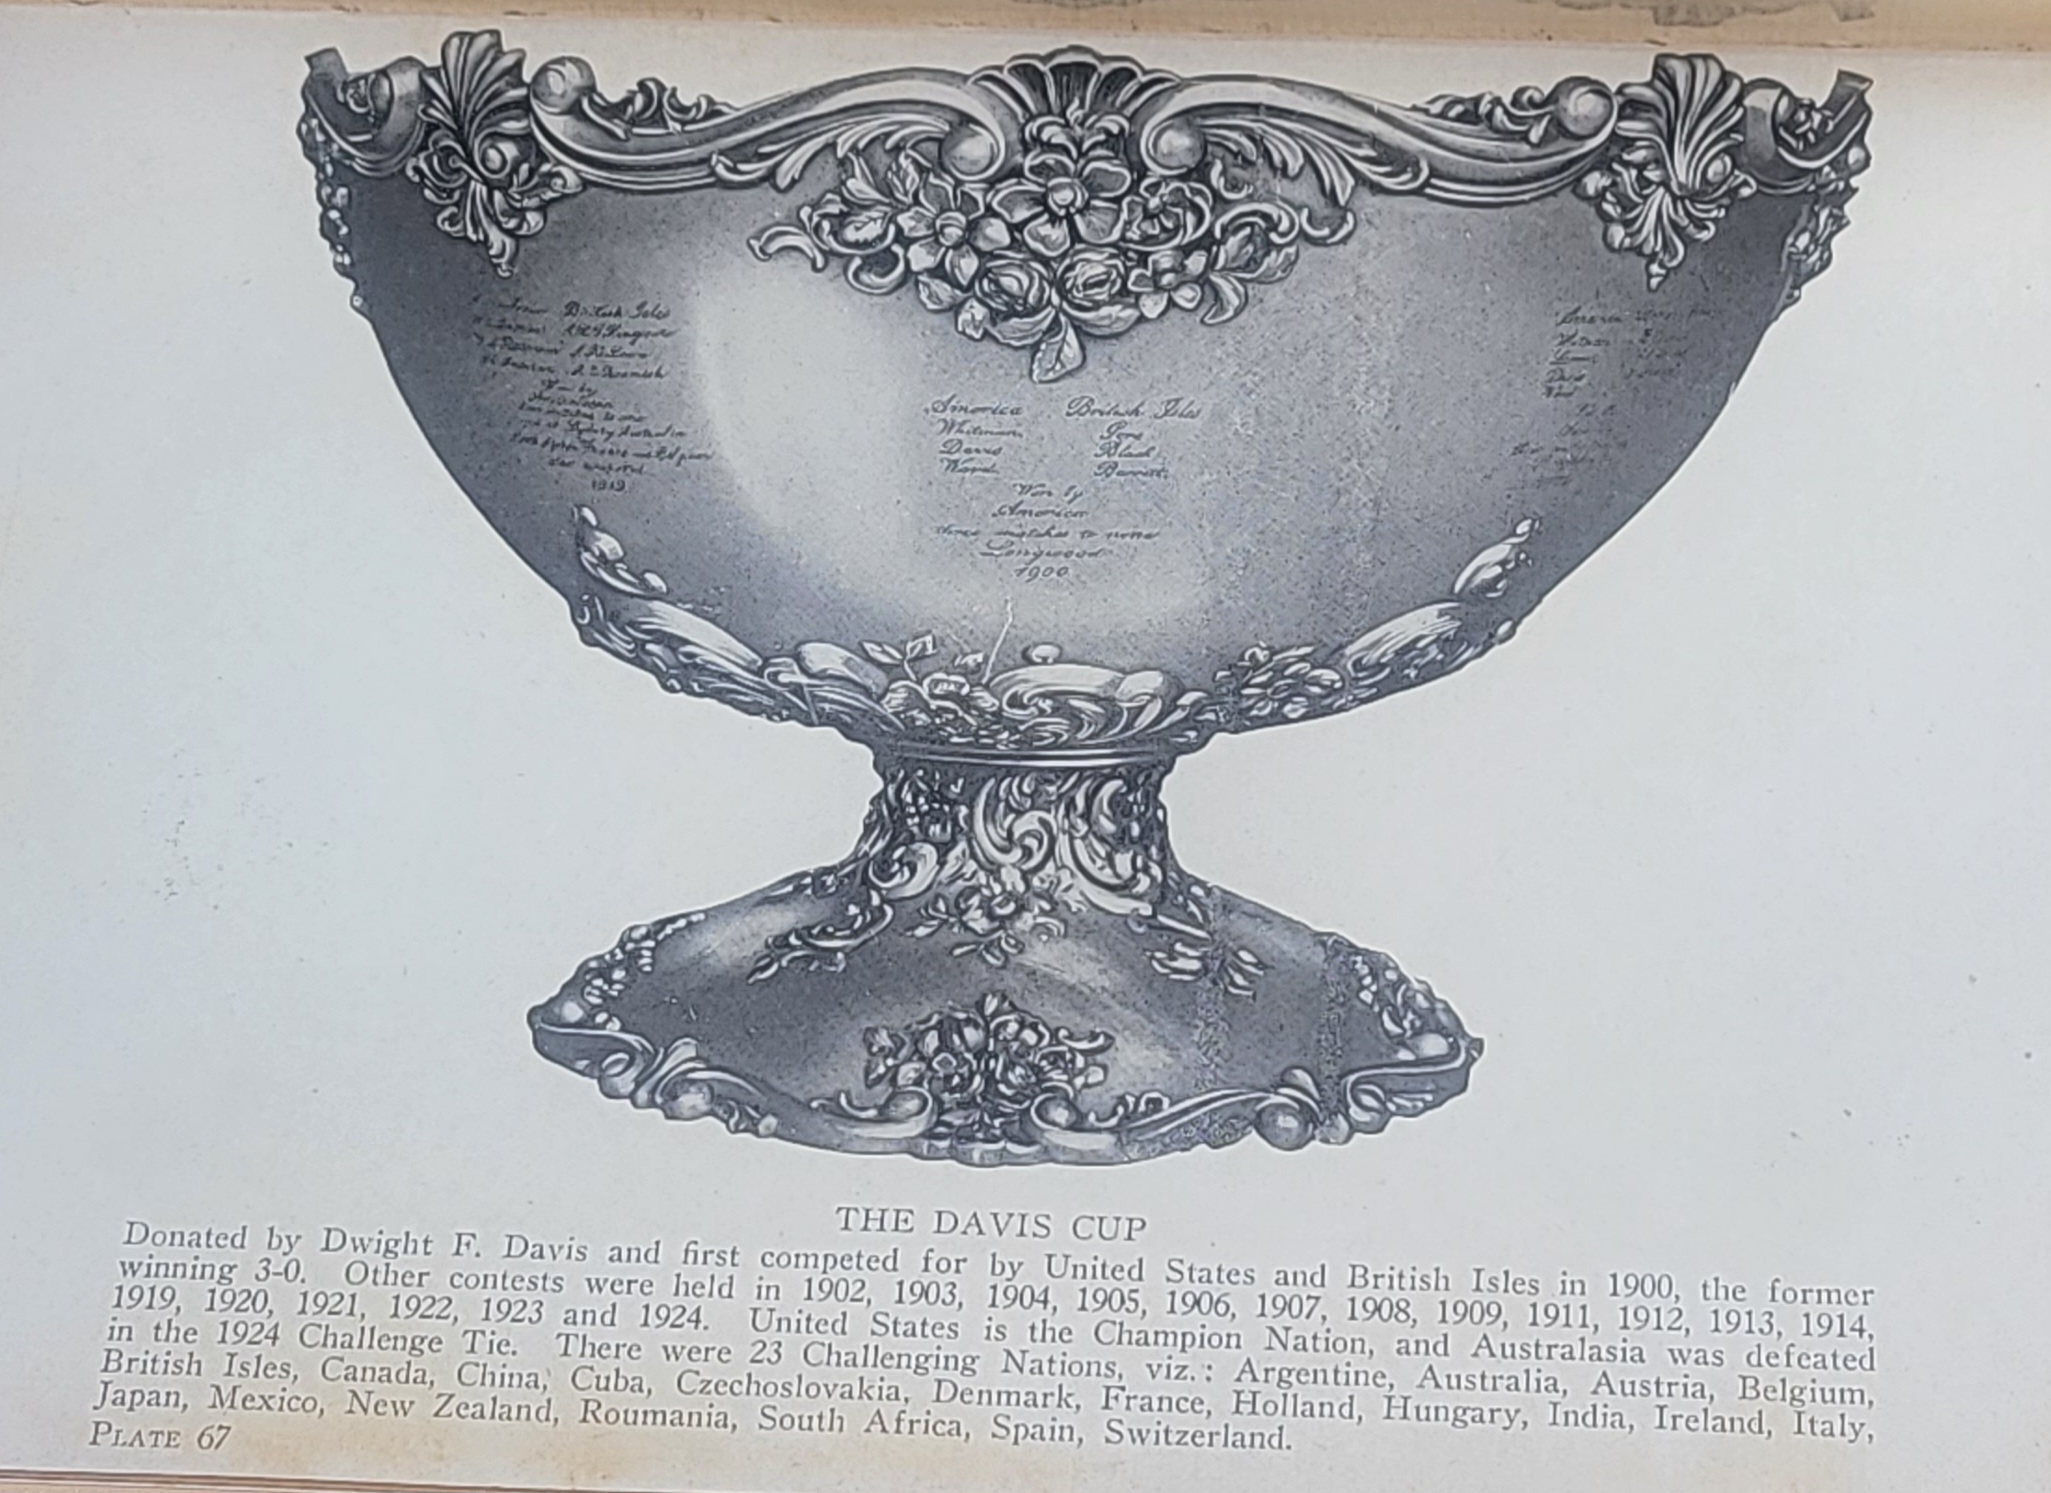 British Isles
Won by
1919
America British Isles
Whitman Gore
Davis Black
Ward Barrett
Won by
America
three matches to none
Longwood
1900
America
THE DAVIS CUP
Donated by Dwight F. Davis and first competed for by United States and British Isles in 1900, the former
winning 3-0. Other contests were held in 1902, 1903, 1904, 1905, 1906, 1907, 1908, 1909, 1911, 1912, 1913, 1914,
1919, 1920, 1921, 1922, 1923 and 1924. United States is the Champion Nation, and Australasia was defeated
in the 1924 Challenge Tie. There were 23 Challenging Nations, viz.: Argentine, Australia, Austria, Belgium,
British Isles, Canada, China, Cuba, Czechoslovakia, Denmark, France, Holland, Hungary, India, Ireland, Italy,
Japan, Mexico, New Zealand, Roumania, South Africa, Spain, Switzerland.
PLATE 67